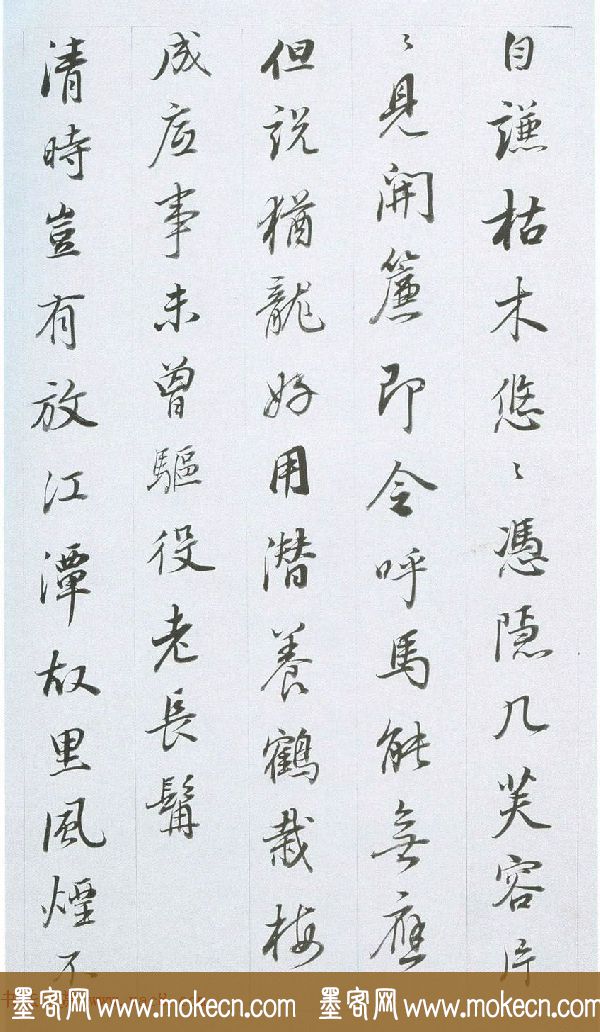 自謙枯木悠〻憑隱几芙容片
〻見開簾即令呼馬能無應
但説猶龍好用潛養鶴栽梅
成底事未曾驅役老長髯
清時豈有放江潭故里風煙不
墨客网 www.mokecn.com 墨客网 www.mokecn.com